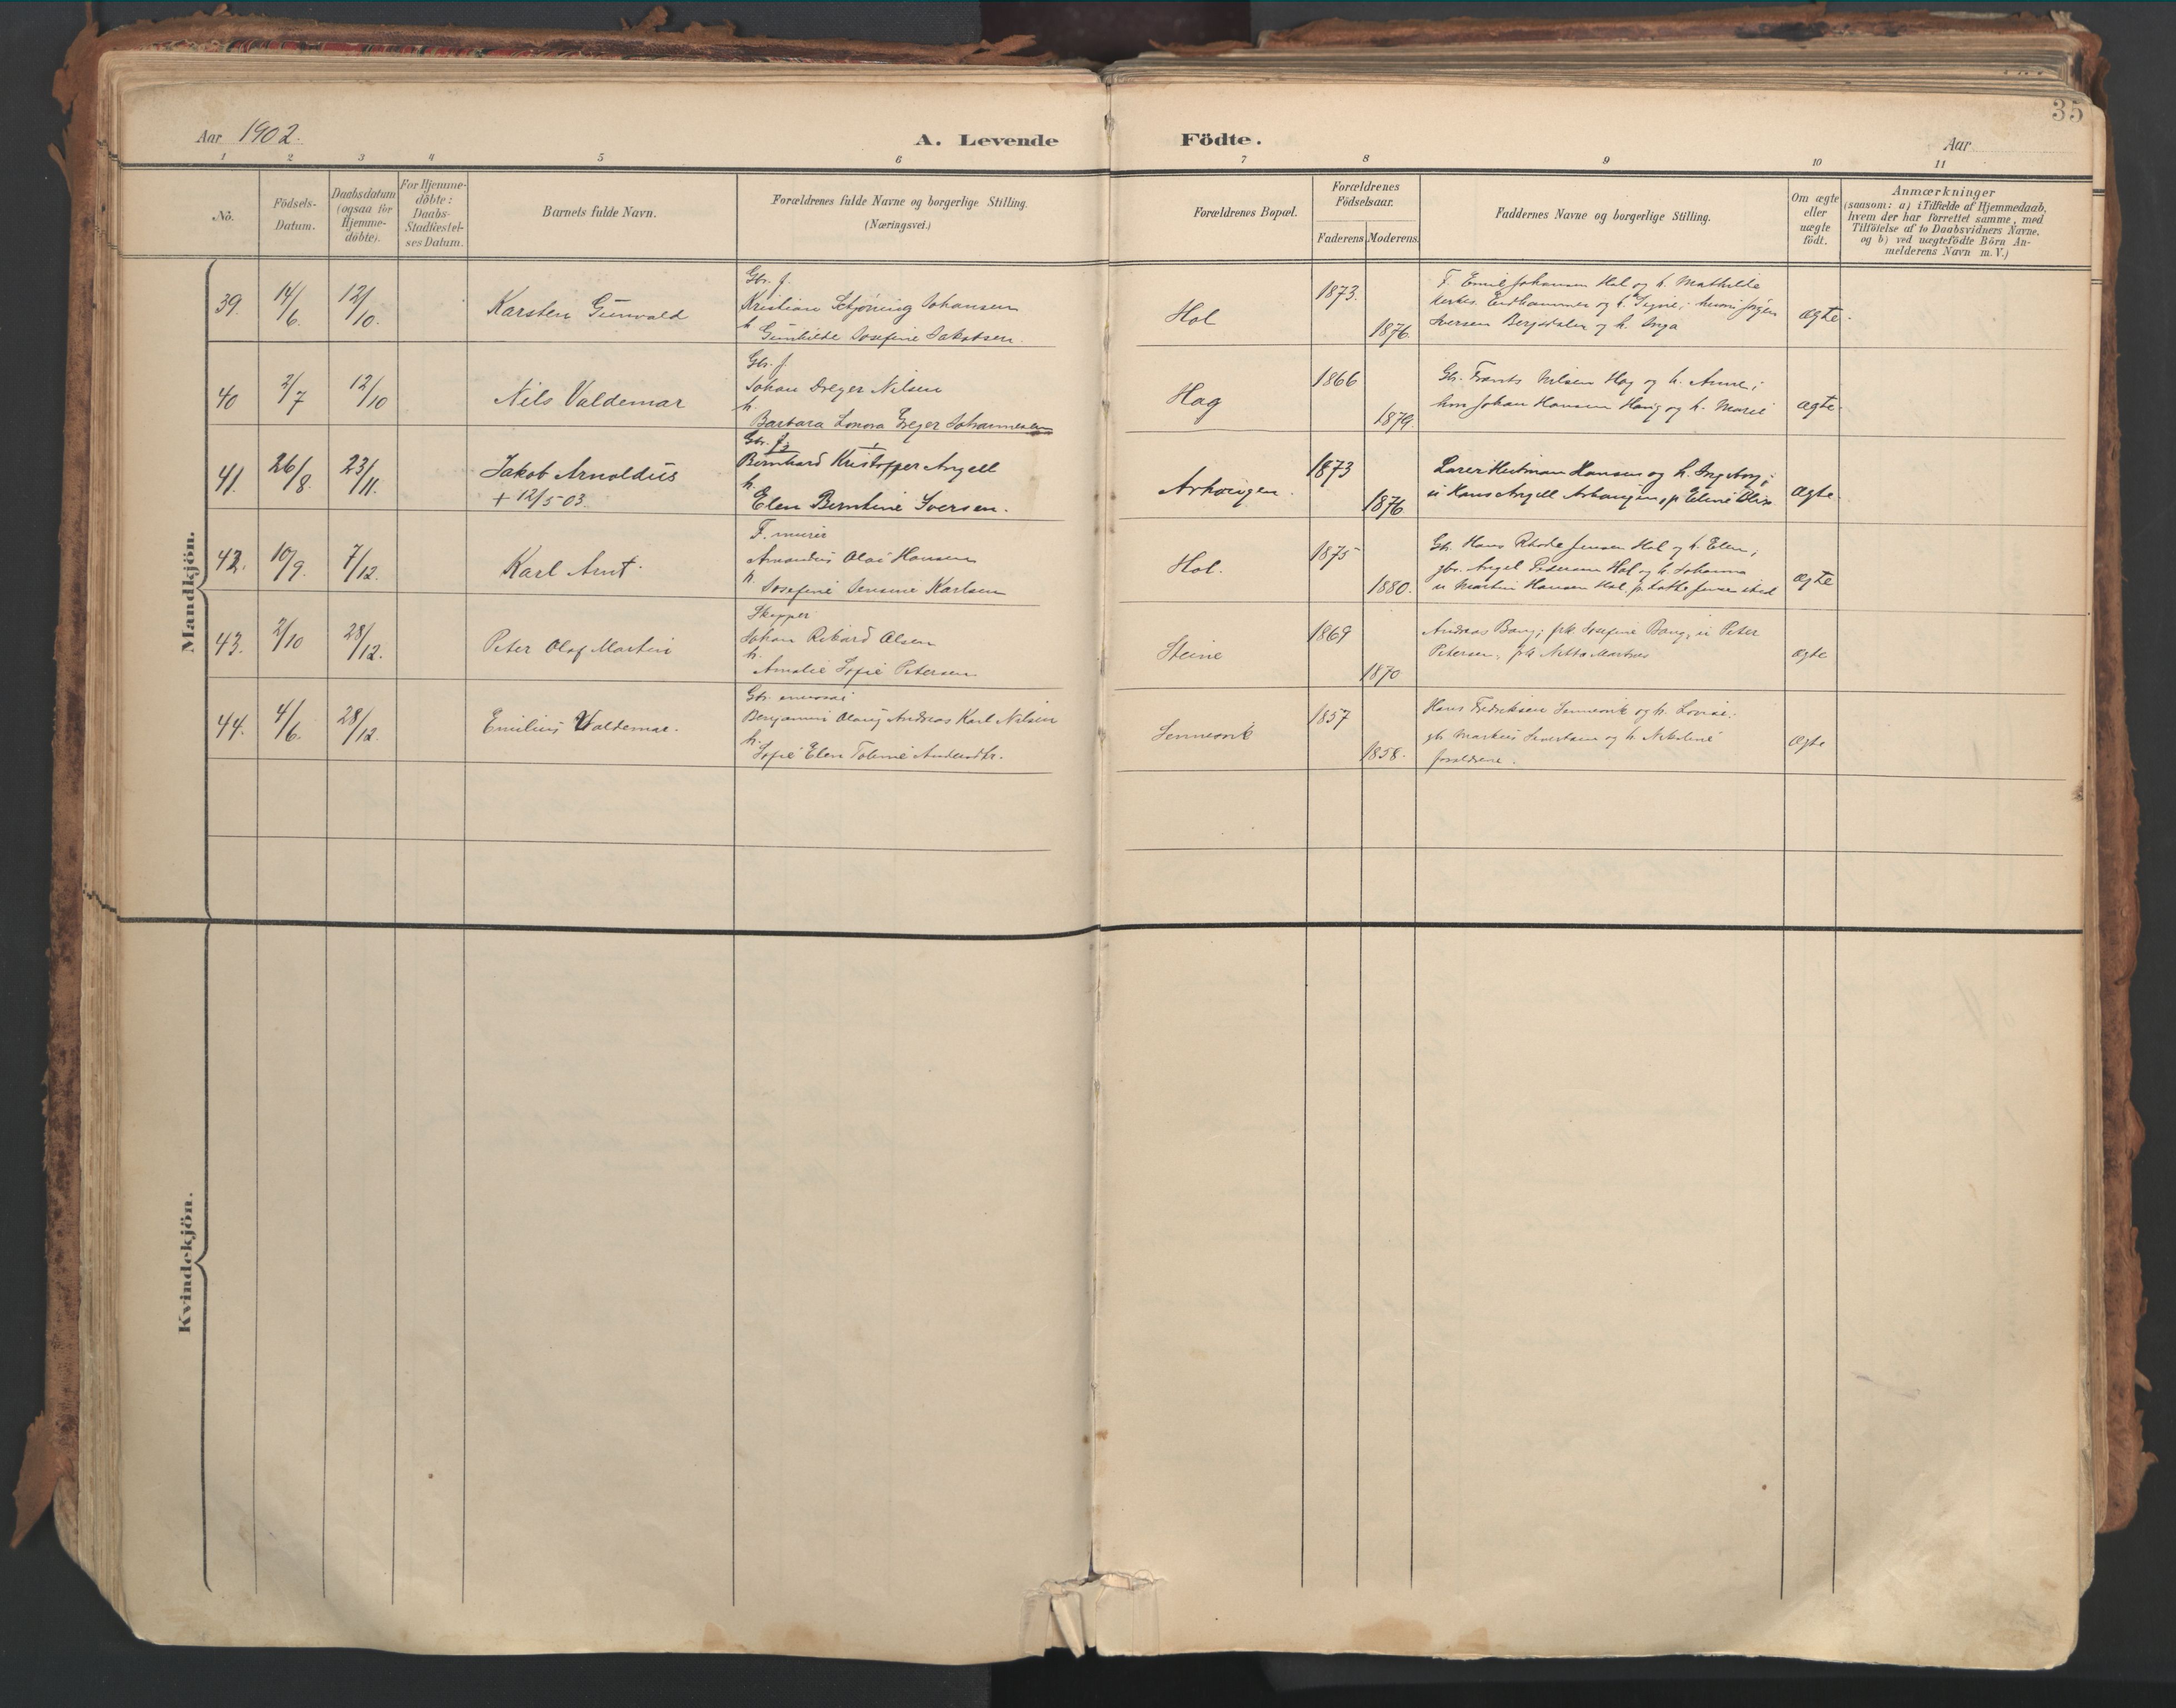 35
Aar 1902.
A. Levende Födte.
Aar
1 2 3 4 5 6 7 8 9 10 11
No.
Födsels-
Datum.
Daabsdatum
(ogsaa för
Hjemme-
döbte).
For Hjemme-
döbte:
Daabs-
Stadfæstel-
ses Datum.
Barnets fulde Navn.
Forældrenes fulde Navne og borgerlige Stilling.
(Næringsvei.)
Forældrenes Bopæl.
Forældrenes
Födselsaar.
Faderens
Moderens.
Faddernes Navne og borgerlige Stilling.
Om ægte
eller
uægte
födt.
Anmærkninger
(saasom: a) i Tilfælde af Hjemmedaab,
hvem der har forrettet samme, med
Tilföielse af to Daabsvidners Navne,
og b) ved uægtefödte Börn An-
melderens Navn m. V.)
Mandkjön.
39. 14/6. 12/10.
Karsten Gunvald
Gbr. f.
Kristian Johansen
h Gunhilde Josefine Jakobsen.
Hol
1873.
1876.
F. Emil Johansen Hol og h. Mathilde
og h. Signe; Jørgen
Iversen Bergsdalen og h. Inga
ægte.
40 2/7 12/10
Nils Valdemar
Gbr. f.
Johan Dreyer Nilsen
h.
Barbara Lonora Greger Johannesen
Hag
1866
1879.
Gb. Frants Nilsen Hag og h. Anne;
Johan Hansen Haug og h. Marie
ægte.
41. 26/8. 23/11.
Jakob Arnoldus
+ 12/5 03.
Gbr. f.
Bernhard Kristoffer Angell
h.
Elen Berntine Iversen.
1873
1876
Hartman Hansen og h. Ingeborg;
u Hans Angell p Eline
ægte.
42. 10/9. 7/12.
Karl Arnt.
F. murer
Amandus Olai Hansen
h.
Josefine Jensine Karlsen
Hol.
1875
1880.
Gb. Hans Rhode Jensen Hol og h. Elen;
gbr. Angel Pedersen Hol og h. Johanna
u Martin Hansen Hol. p. Lotte Jensen
ægte
43. 2/10 28/12.
Peter Olaf Martin
Skipper
Johan Rikard Olsen
h.
Amalie Sofie Petersen
Steine
1869
1870
Andreas Bang; Josefine Bang; u Peter
Petersen; Netta
ægte
44. 4/6. 28/12.
Emilius Valdemar.
Gbr.
Benjamin Olaus Andreas Karl Nilsen
h.
Sofie Elen Andersdtr.
Sennesvik
1857
1858.
Hans Fredriksen Sennesvik og h. Lovise;
gb. Markus og h. Nikoline
forældrene.
ægte
Kvindekjön.